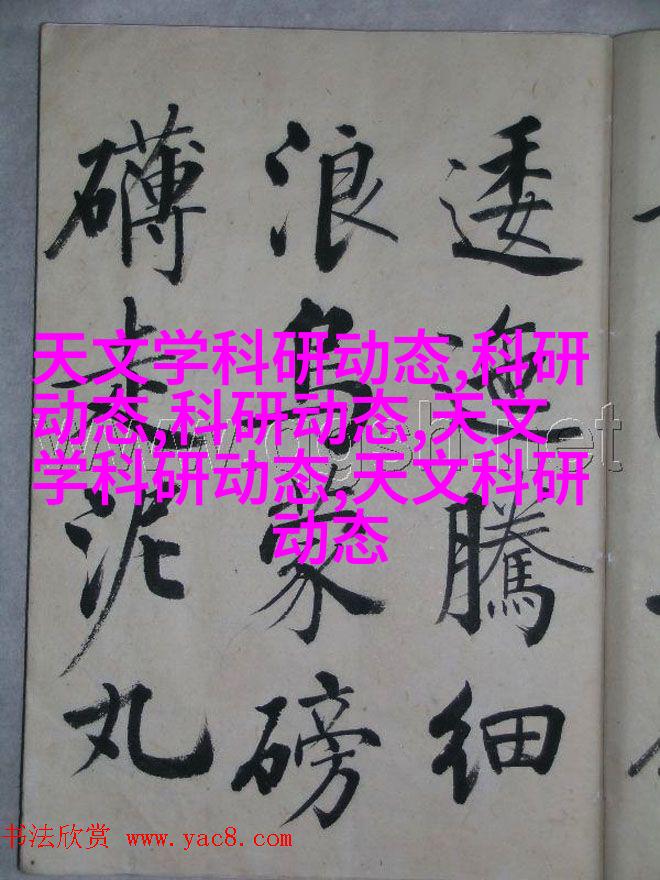 逶迤騰細
浪烏蒙磅
礴走泥丸
天文学科研动态,科研
动态,科研动态,天文
学科研动态,天文科研
动态
书法欣赏 www.yac8.com